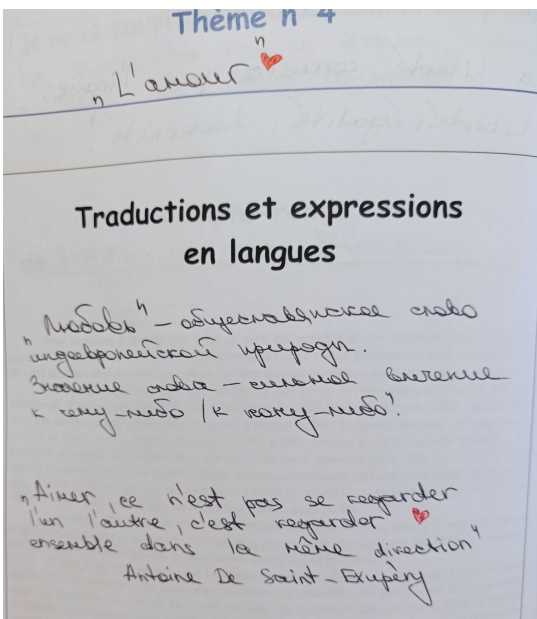 Thème n° 4
"L'amour"
Traductions et expressions
en langues
"Любовь" – общеславянское слово
"индоевропейской природы.
Значение слова – сильное влечение
к чему-либо / к кому-либо".
"Aimer, ce n'est pas se regarder
l'un l'autre, c'est regarder
ensemble dans la même direction"
Antoine De Saint-Exupèry